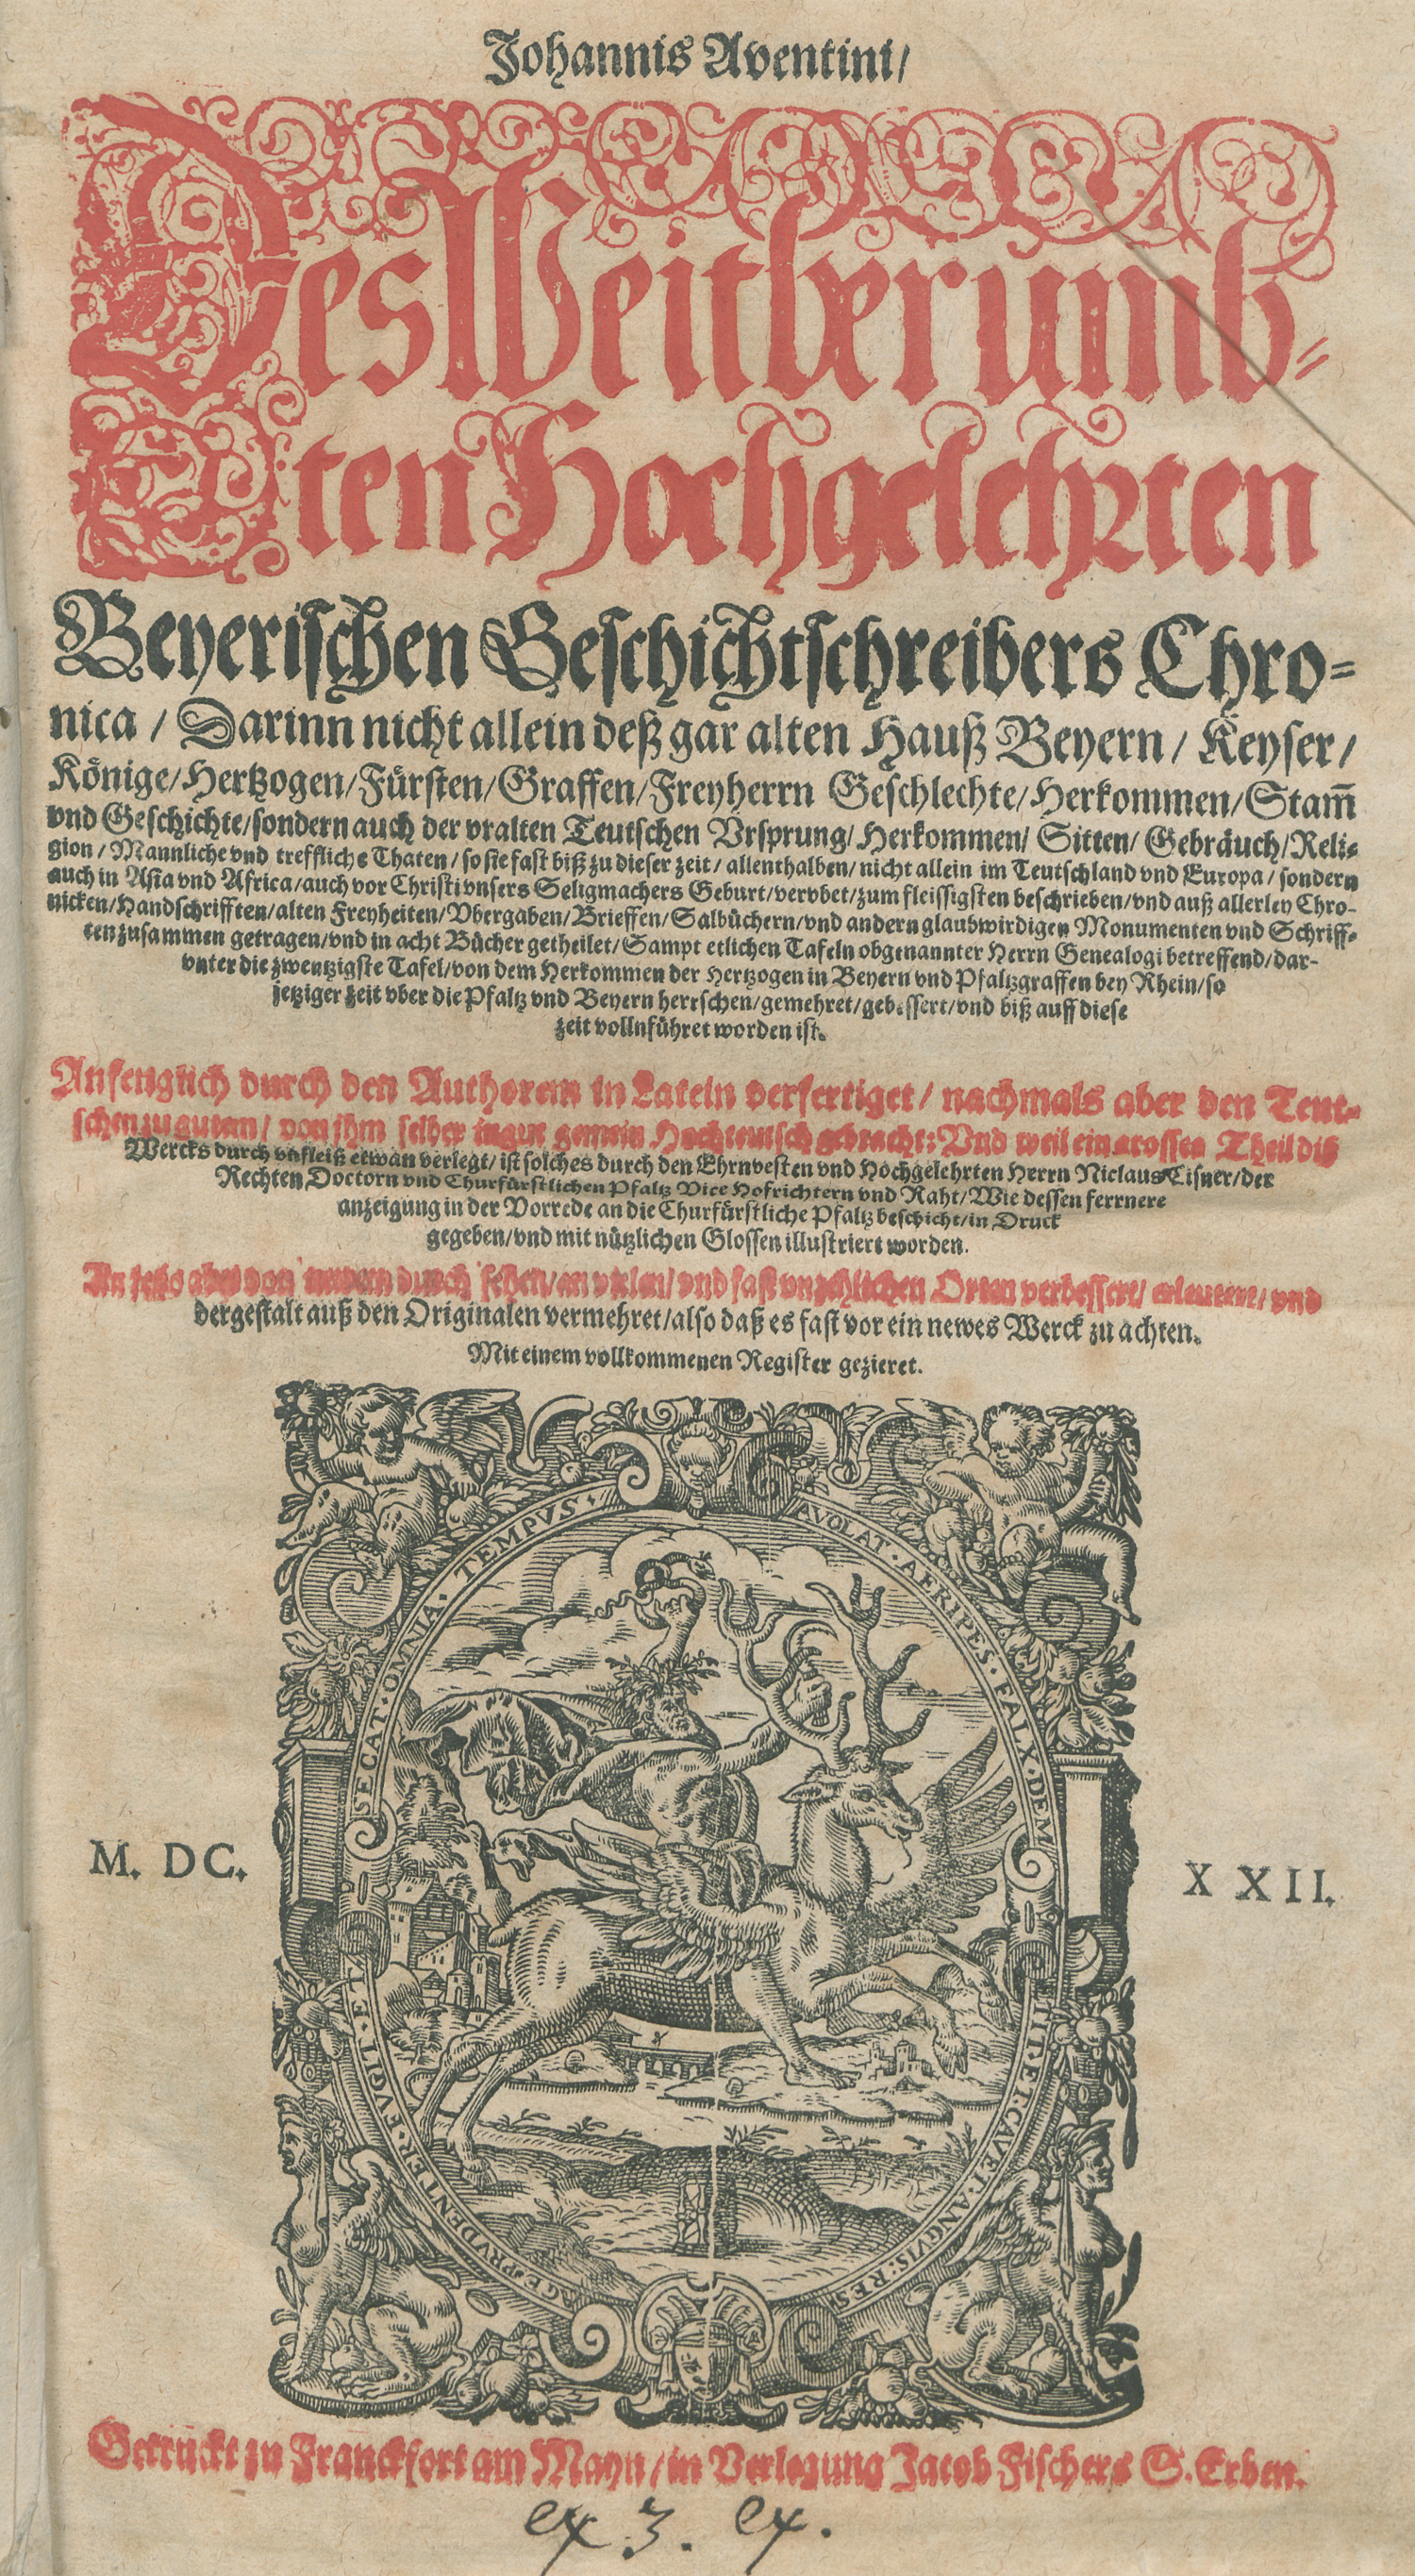 Johannis Aventini/
Des Weitberumb-
ten Hochgelehrten
Beyerischen Geschichtschreibers Chro-
nica / Darinn nicht allein deß gar alten Hauß Beyern / Keyser /
Könige/Hertzogen/Fürsten/Graffen/Freyherrn Geschlechte/Herkommen/Stam̃
vnd Geschichte/sondern auch der vralten Teutschen Vrsprung/Herkommen/ Sitten/ Gebräuch/Reli-
gion / Mannliche vnd treffliche Thaten / so sie fast biß zu dieser zeit / allenthalben / nicht allein im Teutschland vnd Europa / sondern
auch in Asia vnd Africa/auch vor Christi vnsers Seligmachers Geburt/vervbet/zum fleissigsten beschrieben/vnd auß allerley Chro-
nicken/Handschrifften/alten Freyheiten/Vbergaben/Brieffen/Salbüchern/vnd andern glaubwirdigen Monumenten vnd Schriff-
ten zusammen getragen/vnd in acht Bücher getheilet/Sampt etlichen Tafeln obgenannter Herrn Genealogi betreffend/dar-
vnter die zwentzigste Tafel/von dem Herkommen der Hertzogen in Beyern vnd Pfaltzgraffen bey Rhein/so
jetziger zeit vber die Pfaltz vnd Beyern herrschen/gemehret/gebessert/vnd biß auff diese
zeit vollnführet worden ist.
Anfenglich durch den Authorem in Latein verfertiget / nachmals aber den Teut-
schen zu guten / von ihm selber in gut gemein Hochteutsch gebracht: Vnd weil ein grosser Theil diß
Wercks durch vnfleiß etwan verlegt/ ist solches durch den Ehrnvesten vnd Hochgelehrten Herrn Niclaus Cisner/der
Rechten Doctorn vnd Churfürstlichen Pfaltz Vice Hofrichtern vnd Raht/Wie dessen ferrnere
anzeigung in der Vorrede an die Churfürstliche Pfaltz beschicht/in Druck
gegeben/vnd mit nützlichen Glossen illustriert worden.
An jetzo aber von newem durch sehen/an vielen/vnd fast vnzehlichen Orten verbessert/ erleutert/ vnd
dergestalt auß den Originalen vermehret/also daß es fast vor ein newes Werck zu achten.
Mit einem vollkommenen Register gezieret.
SECAT · OMNIA · TEMPVS ·
AVOLAT · AERIPES · FALX · DEM
ETIT · ET · CAVET · ANGVIS : RES
AGE · PRVDENTER · FVGIT · ET
M. DC.
XXII.
Getruckt zu Franckfort am Mayn / in Verlegung Jacob Fischers S. Erben.
ex. 3. ex.